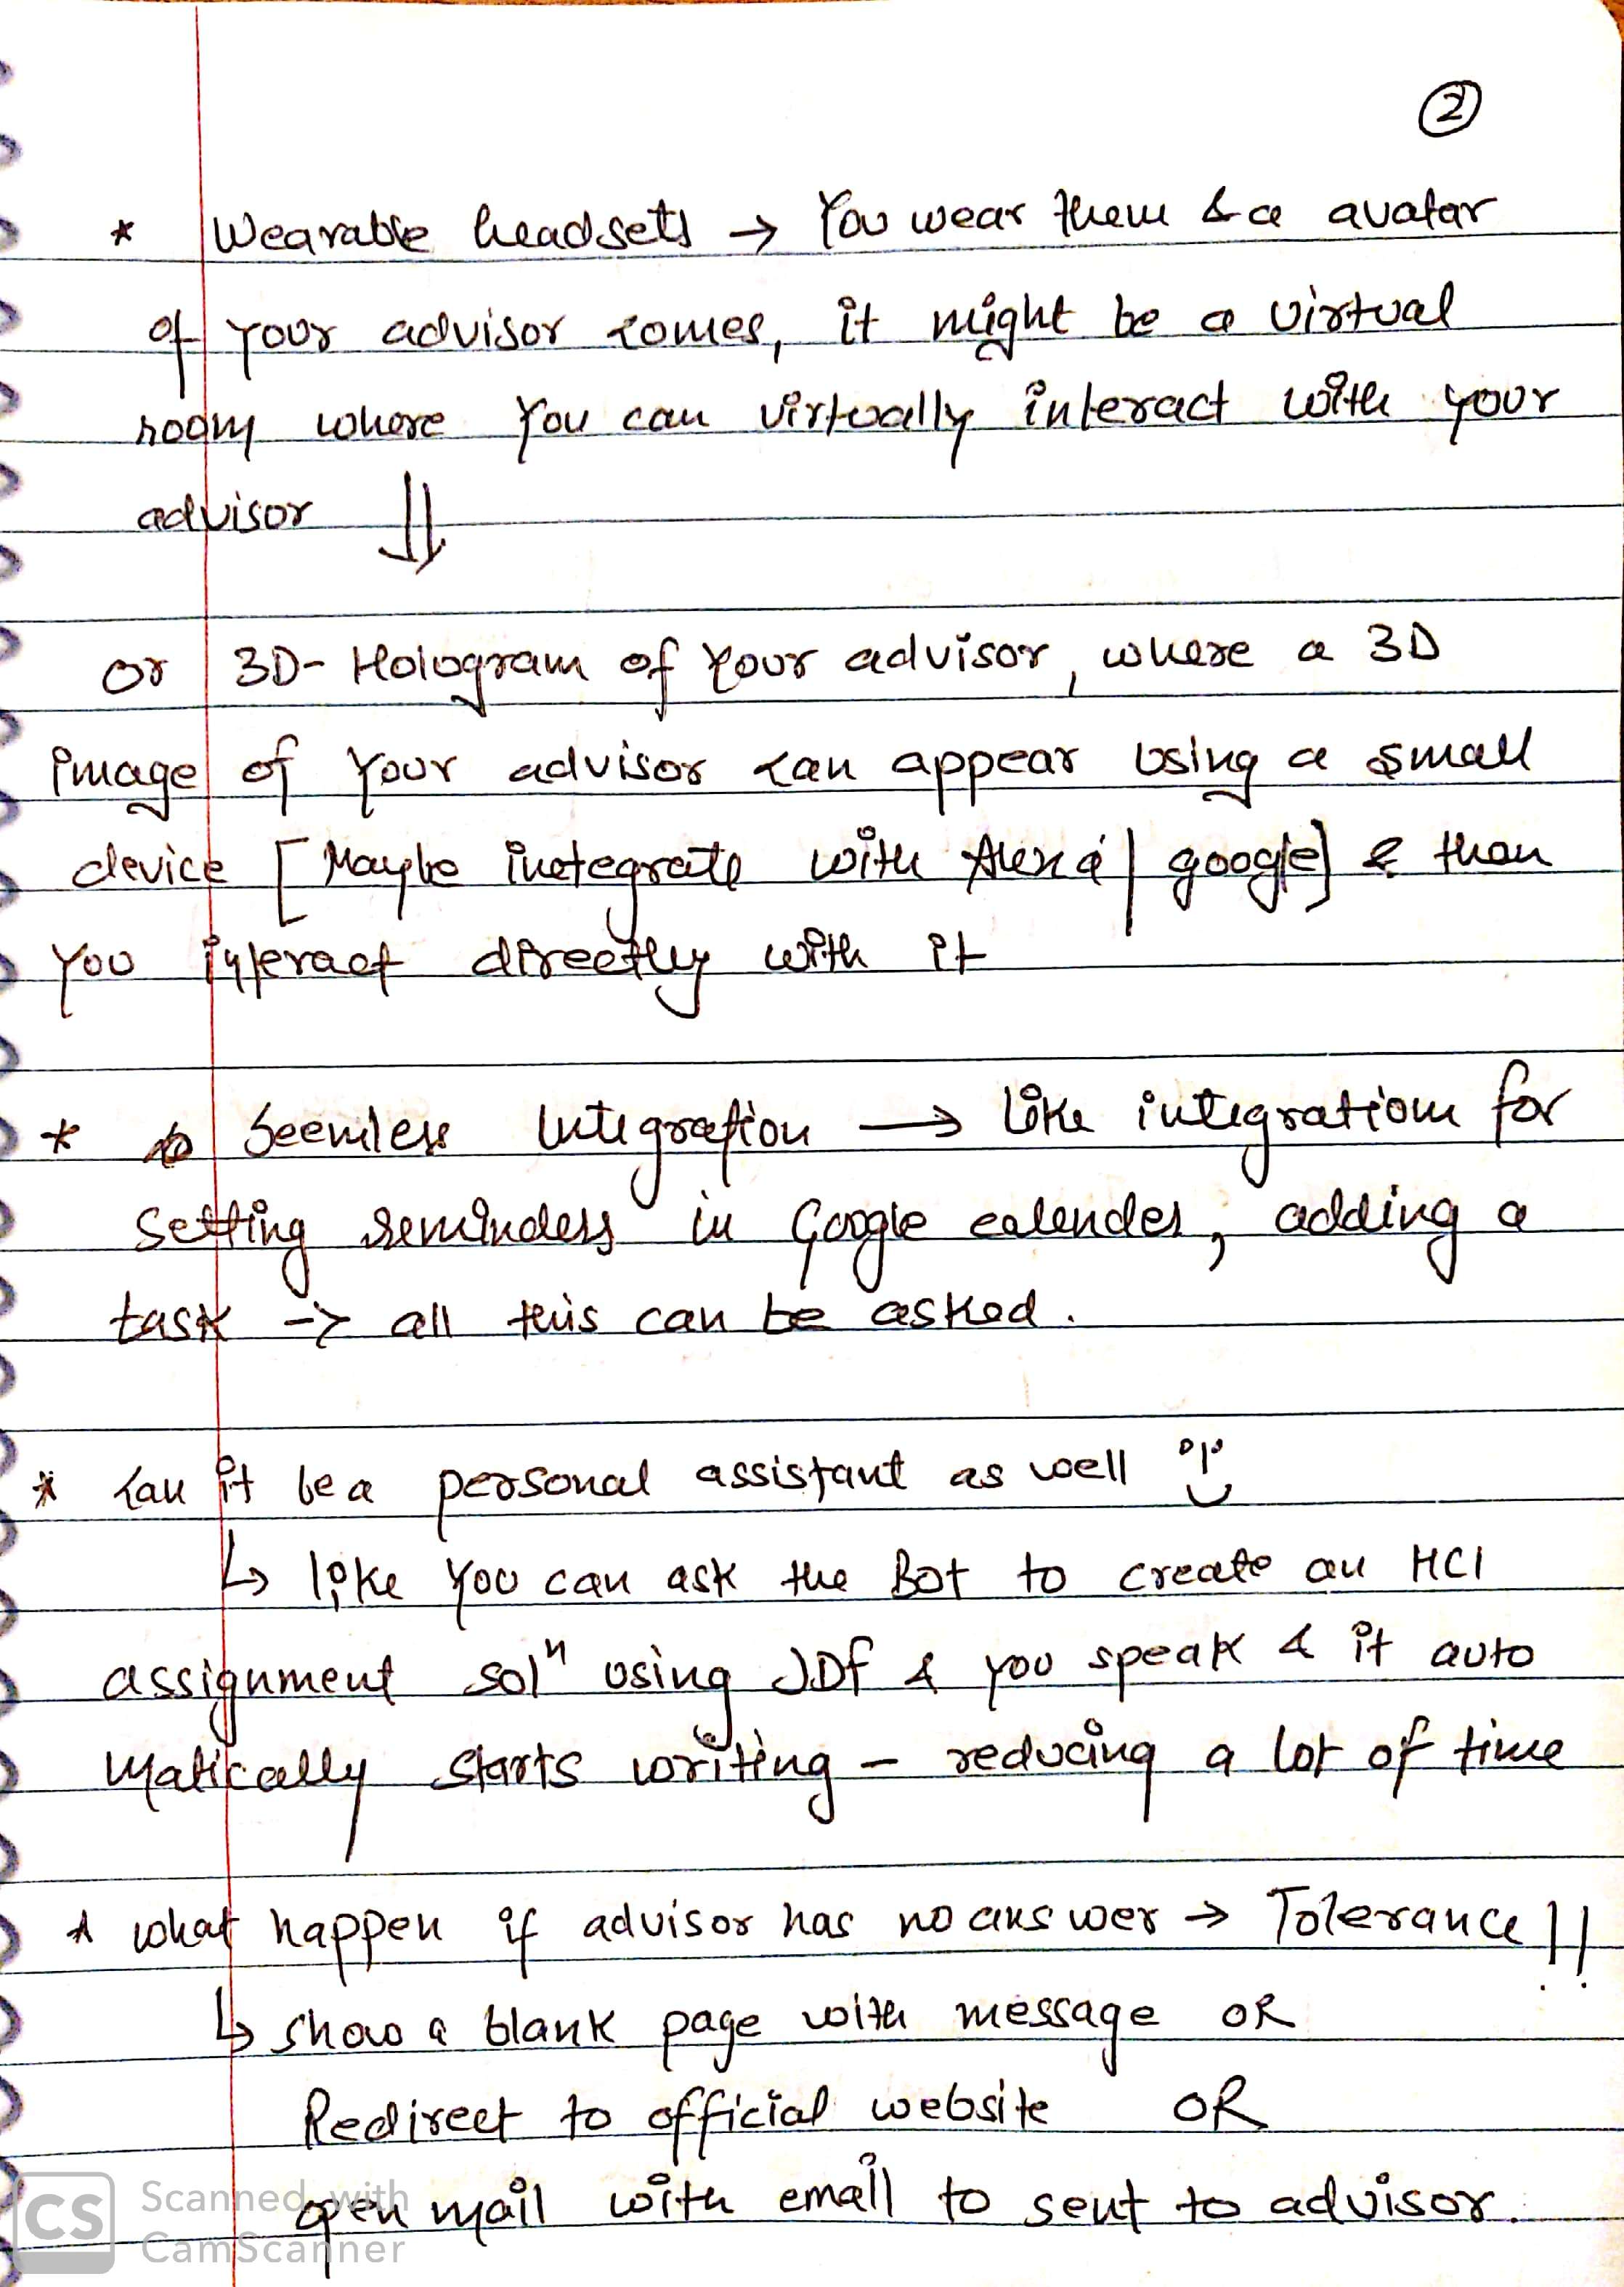 ②
* Wearable headsets → You wear them & a avatar
of your advisor comes, it might be a virtual
room where you can virtually interact with your
advisor ⇓
or 3D- Hologram of your advisor, where a 3D
image of your advisor can appear using a small
device [Maybe inetegrate with Alexa | google] & than
you interact directly with it
* Seemless Integration → like integration for
setting reminders in Google calender, adding a
task -> all this can be asked.
* Can it be a personal assistant as well
↳ like you can ask the Bot to create an HCI
assignment solⁿ using JDF & you speak & it auto
matically starts writing - reducing a lot of time
* what happen if advisor has no answer → Tolerance !!
↳ show a blank page with message OR
Redirect to official website OR
open mail with email to sent to advisor.
CS Scanned with
CamScanner